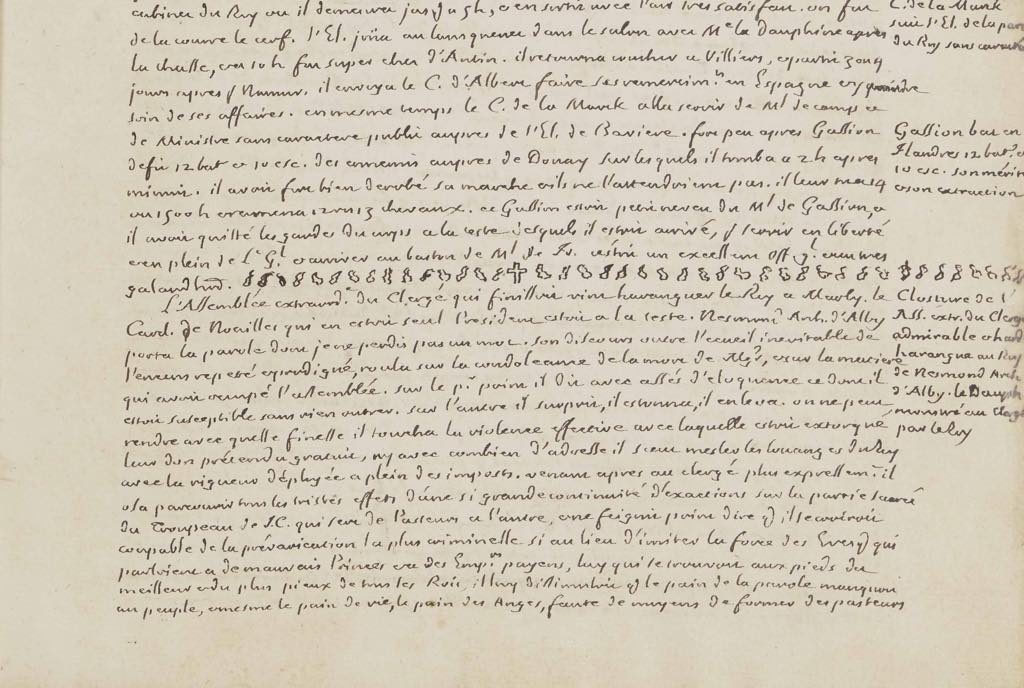 cabinet du Roy où il demeura jusqu'à 5 h, et en sortit avec l'air tres satisfait. on fut
de la courre le cerf. l'El. joüa au lansquenet dans le salon avec Me la Dauphine apres
la chasse, et a 10 h fut super chez d'Antin. il retourna coucher a Villiers, et partit 3 ou 4
jours apres pr Namur. il envoya le C. d'Albert faire ses remercimts en Espagne et y prendre
soin de ses affaires. en mesme temps le C. de la Marck alla servir de Ml de camp et
de Ministre sans caractere public aupres de l'El. de Baviere. fort peu apres Gassion
defit 12 bat. et 10 esc. des ennemis aupres de Doüay sur lesquels il tomba a 2 h apres
minuit. il avoit fort bien derobé sa marche et ils ne l'attendoient pas. il leur tua 14
ou 1500 h et ramena 12 ou 13 chevaux. ce Gassion estoit petit neveu du Ml de Gassion, et
il avoit quitté les gardes du corps a la teste desquels il estoit arrivé, pr servir en liberté
et en plein de Lt Gl et arriver au baston de Ml de Fr. c'estoit un excellent Offr gl. et un tres
galand hme.
L'Assemblée extraordre du Clergé qui finissoit vint haranguer le Roy a Marly. le
Card. de Noailles qui en estoit seul President estoit a la teste. Nesmond Arch. d'Alby
porta la parole dont je ne perdis pas un mot. son discours outre l'ecueil inevitable de
l'encens repeté et prodigué, roula sur la condoleance de la mort de Mgr, et sur la matiere
qui avoit occupé l'assemblée. sur le pr point il dit avec assés d'eloquence ce dont il
estoit susceptible sans rien outrer. sur l'autre il surprit, il estonna, il enleva. on ne peut
rendre avec quelle finesse il toucha la violence effective avec laquelle estoit extorqué
leur don prétendu gratuit, ny avec combien d'adresse il sceut mesler les loüanges du Roy
avec la rigueur déployée a plein des imposts. venant apres au clergé plus expressemt il
osa parcourir tous les tristes effets d'une si grande continuité d'exactions sur la partie sacrée
du Troupeau de J.C. qui sert de Pasteurs a l'autre, et ne feignit point dire qu'il se croiroit
coupable de la prévarication la plus criminelle si au lieu d'imiter la force des Evesqs qui
parloient a de mauvais Princes et a des Emprs payens, luy qui se trouvoit aux pieds du
meilleur et du plus pieux de tous les Rois, il luy dissimuloit que le pain de la parole manquoit
au peuple, et mesme le pain de vie, le pain des Anges, faute de moyens de former des pasteurs
C. de la Marck
suit l'El. de la part
du Roy sans caractere
Gassion bat en
Flandres 12 bat. et
10 esc. son mérite
et son extraction
Closture de l'
Ass. extr. du Clergé
admirable et hardie
harangue au Roy
de Nesmond Arch
d'Alby. le Dauph
monstré au clergé
par le Roy